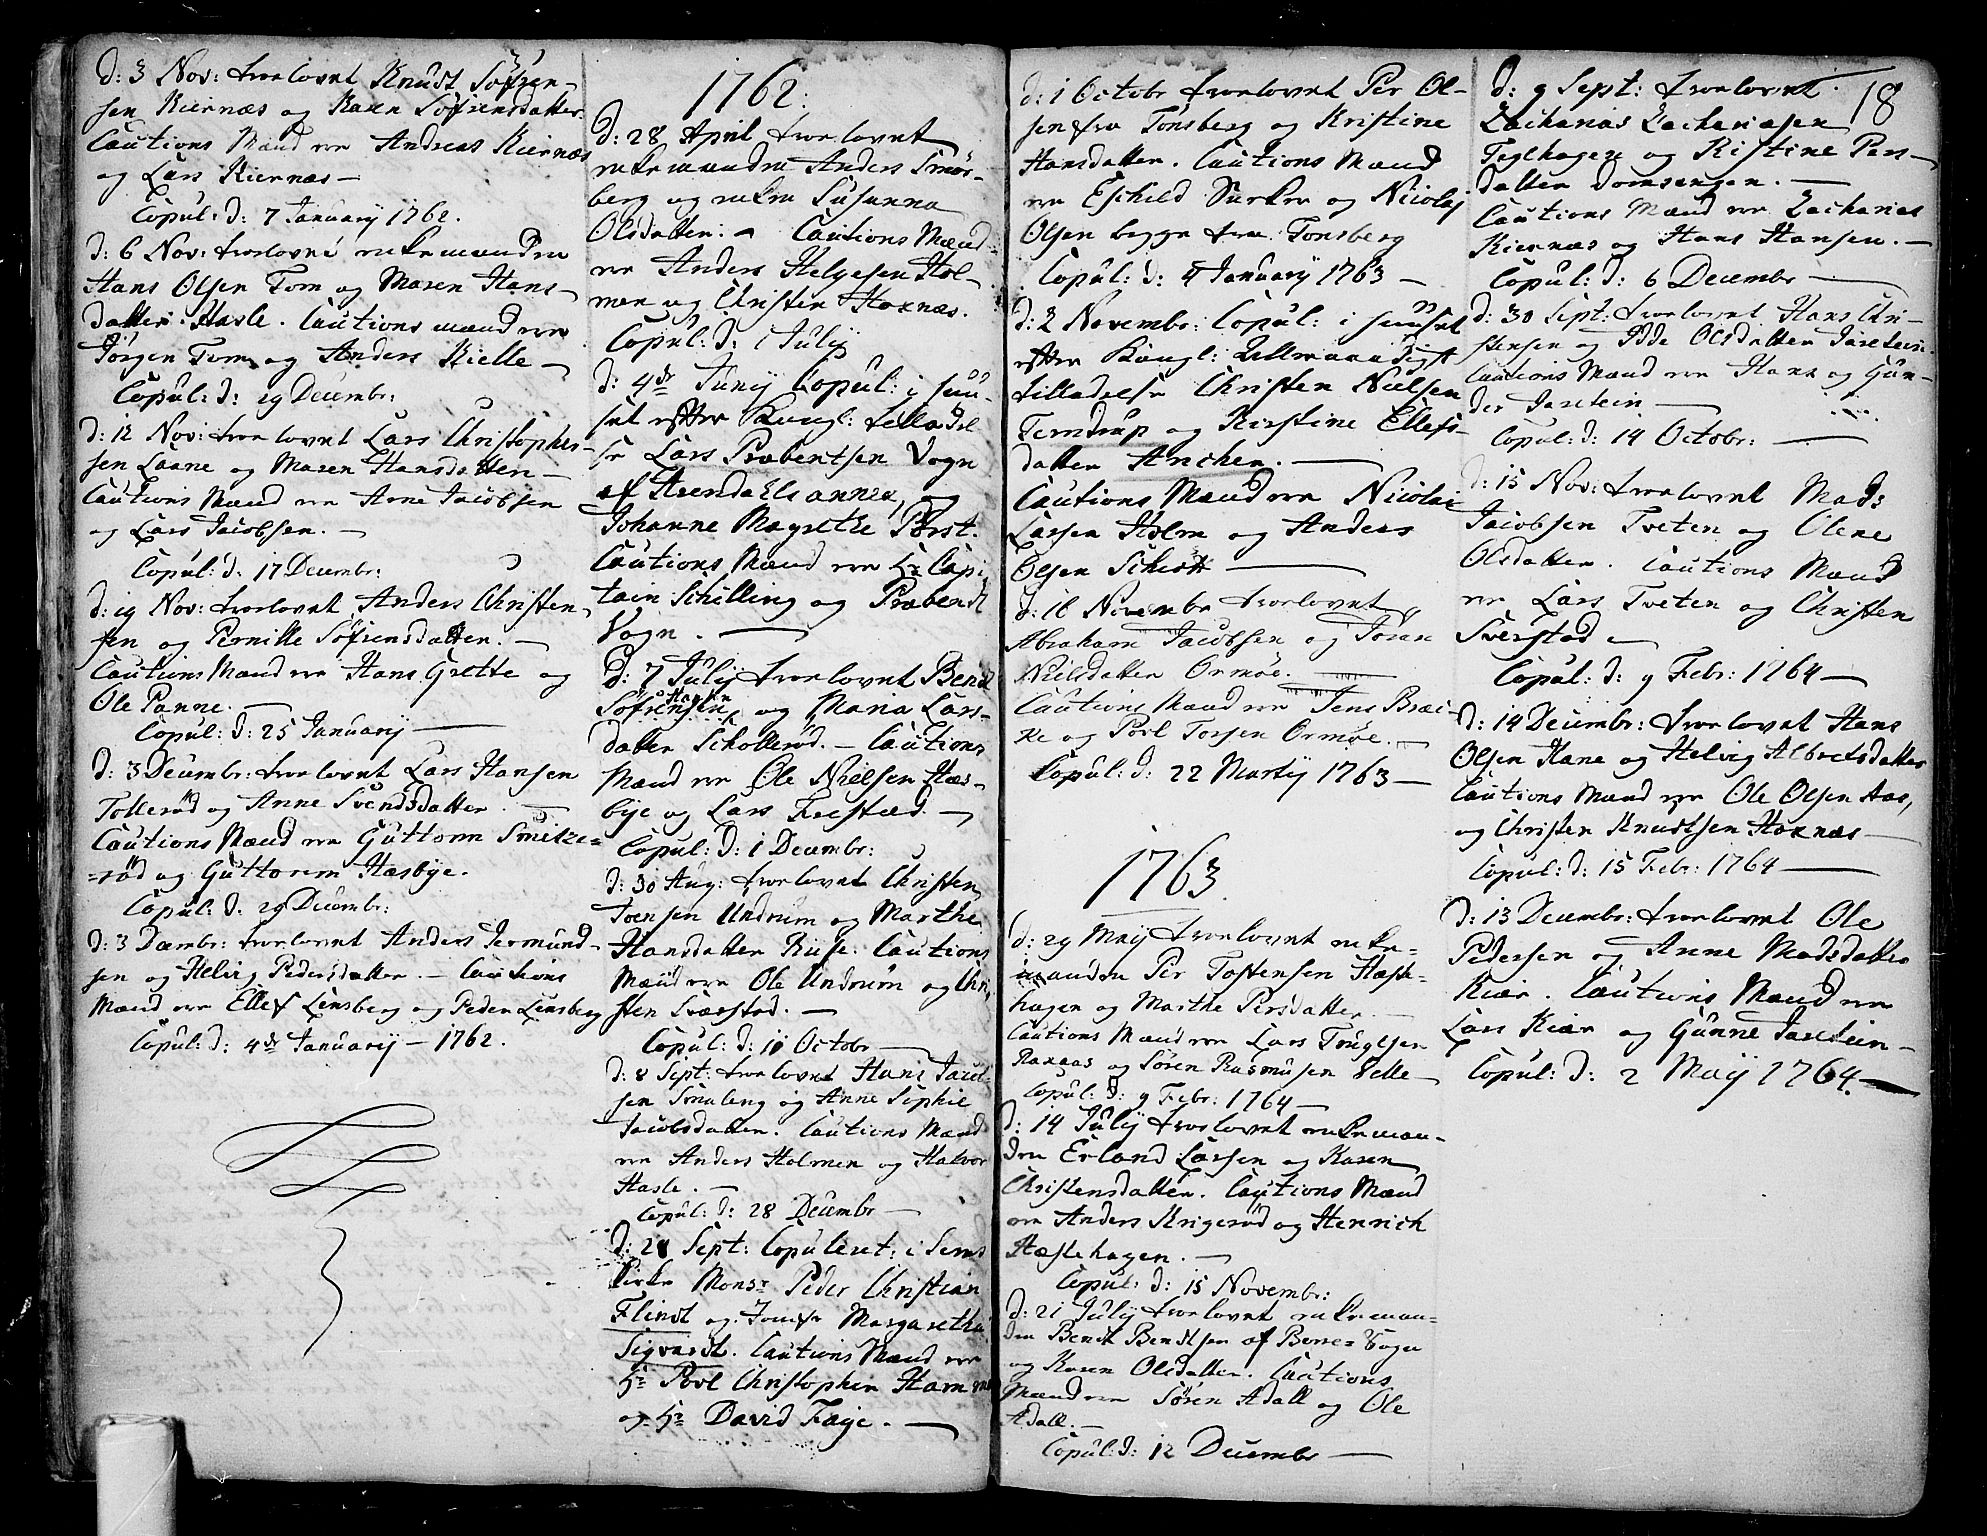 d: 3 Nov: trorlovet Knudt Söfren-
sen Kiernæs og Karen Söfrensdatter
Cautions Mænd ere Andreas Kiernæs
og Lars Kiernæs —
Copul: d: 7 January 1762.
d: 6 Nov: trorlovet enkemanden
Hans Olsen Tom og Maren Hans-
datter Hasle. Cautions mænd ere
Jörgen Tem og Anders Kielle —
Copul: d: 29 Decembr:
d: 12 Nov: trorlovet Lars Christophes-
sen Laane og Maren Hansdatter —
Cautions Mænd ere Arne Jacobsen
og Lars Jacobsen. —
Copul: d: 17 Decembr:
d: 19 Nov: trorlovet Anders Christen-
sen og Pernille Söfrensdatter. —
Cautions Mænd ere Hans Grette og
Ole Panne. —
Copul: d: 25 January —
d: 3 Decembr: trorlovet Lars Hansen
Tolleröd og Anne Svendsdatter —
Cautions Mænd ere Guttorm Smitze=
=röd og Guttorm Hæsbye.
Copul: d: 29 Decembr:
d: 3 Dæmbr: trorlovet Anders Jermund-
sen og Helvig Pedersdatter. — Cautions
Mænd ere Ellef Linsberg og Peder Linsberg
Copul: d: 4de January — 1762.
1762:
d: 28 April trorlovet
enkemanden Anders Smörs-
berg og enken Susanna
Olsdatter. — Cautions Mænd
ere Anders Helgesen Hol-
men og Christen Hoxnæs.
Copul: d: 1 July
d: 4de Juny Copul: i huu-
set efter Kongl: tilladel
se Lars Præbentsen Vogn
af Arendals annex, og
Johanne Magrethe Pörst.
Cautions Mænd ere Hr Capi-
tain Schilling og Præbendt
Vogn. —
d: 7 July trorlovet Bendt
Hansen
Söfrensen og Maria Lars-
datter Scholleröd. — Cautions
Mænd ere Ole Nielsen Hæs-
bye og Lars Frestæd. —
Copul: d: 1 Decembr:
d: 30 Aug: trorlovet Christen
Joensen Undrum og Marthe
Hansdatter Ruse. Cautions
Mænd ere Ole Undrum og Chri-
sten Sværstad. —
Copul: d: 11 Octobr —
d: 8 Sept: trorlovet Hans Jacob-
sen Smaleng og Anne Sophie
Jacobsdatter. Cautions Mænd
ere Anders Holmen og Halvor
Hasle. —
Copul: d: 28 Decembr —
d: 28 Sept: Copuleret: i Sems
kirke Monsr Peder Christian
Flindt og Jomfr Margaretha
Sigvardt. Cautions Mænd ere
Hr Povl Christopher Hammer
og Hr David Faye. —
d: 1 Octobr trorlovet Per Ol-
sen fra Tonsberg og Kristine
Hansdatter. Cautions Mænd
ere Eschild Surke og Nicolaj
Olsen begge fra Tonsberg
Copul: d: 4 January 1763 —
d: 2 Novembr: Copul: i huuset
efter Kongl: Allernaadigst
tilladelse Christen Nielsen
Terndrup og Kirstine Ellefs-
datter Anchen. —
Cautions Mænd ere Nicolai
Larsen Holm og Anders
Olsen Schiött —
d: 16 Novembr trorlovet
Abraham Jacobsen og Jören
Nielsdatter Ormöe. —
Cautions Mænd ere Jens Bræi-
ke og Povl Torsen Ormöe. —
Copul: d: 22 Martij 1763 —
1763.
d: 29 Maij trorlovet enke=
manden Per Tostensen Hæste-
hagen og Marthe Persdatter. —
Cautions Mænd ere Lars Trugelsen
Ramnas og Sören Rasmusen Velle
Copul: d: 9 Febr: 1764 —
d: 14 July trorlovet enkeman-
den Erland Larsen og Karen
Christensdatter. Cautions Mænd
ere Anders Krigeröd og Henrich
Hæstehagen. —
Copul: d: 15 Novembr:
d: 21 July trorlovet enkeman=
den Bendt Bendtsen af Borre=Sogn
og Karen Olsdatter. Cautions
Mænd ere Sören Adall og Ole
Adall. —
Copul: d: 12 Decembr —
18
d: 9 Sept: trorlovet.
Zacharias Zachariasen
Teglhagen og Kistine Pers-
datter Domsengen. —
Cautions Mænd ere Zacharias
Kiernæs og Hans Hansen. —
Copul: d: 6 Decembr —
d: 30 Sept: trorlovet Hans Chri-
stensen og Idde Olsdatter Jareteein.
Cautions Mænd ere Hans og Gun-
der Jaretein —
Copul: d: 14 Octobr: —
d: 15 Nov: trorlovet Mads
Jacobsen Tveten og Olene
Olsdatter. Cautions Mænd
ere Lars Tveten og Christen
Sverstad —
Copul: d: 9 Febr: 1764 —
d: 14 Decembr: trorlovet Hans
Olsen Hane og Helvig Albretsdatter
Cautions Mænd ere Ole Olsen Aas,
og Christen Knudtsen Hoxnæs —
Copul: d: 15 Febr: 1764 —
d: 13 Decembr: trorlovet Ole
Pedersen og Anne Madsdatter
Kiær. Cautions Mænd ere
Lars Kiær og Gunne Jaretein —
Copul: d: 2 Maij 1764. —